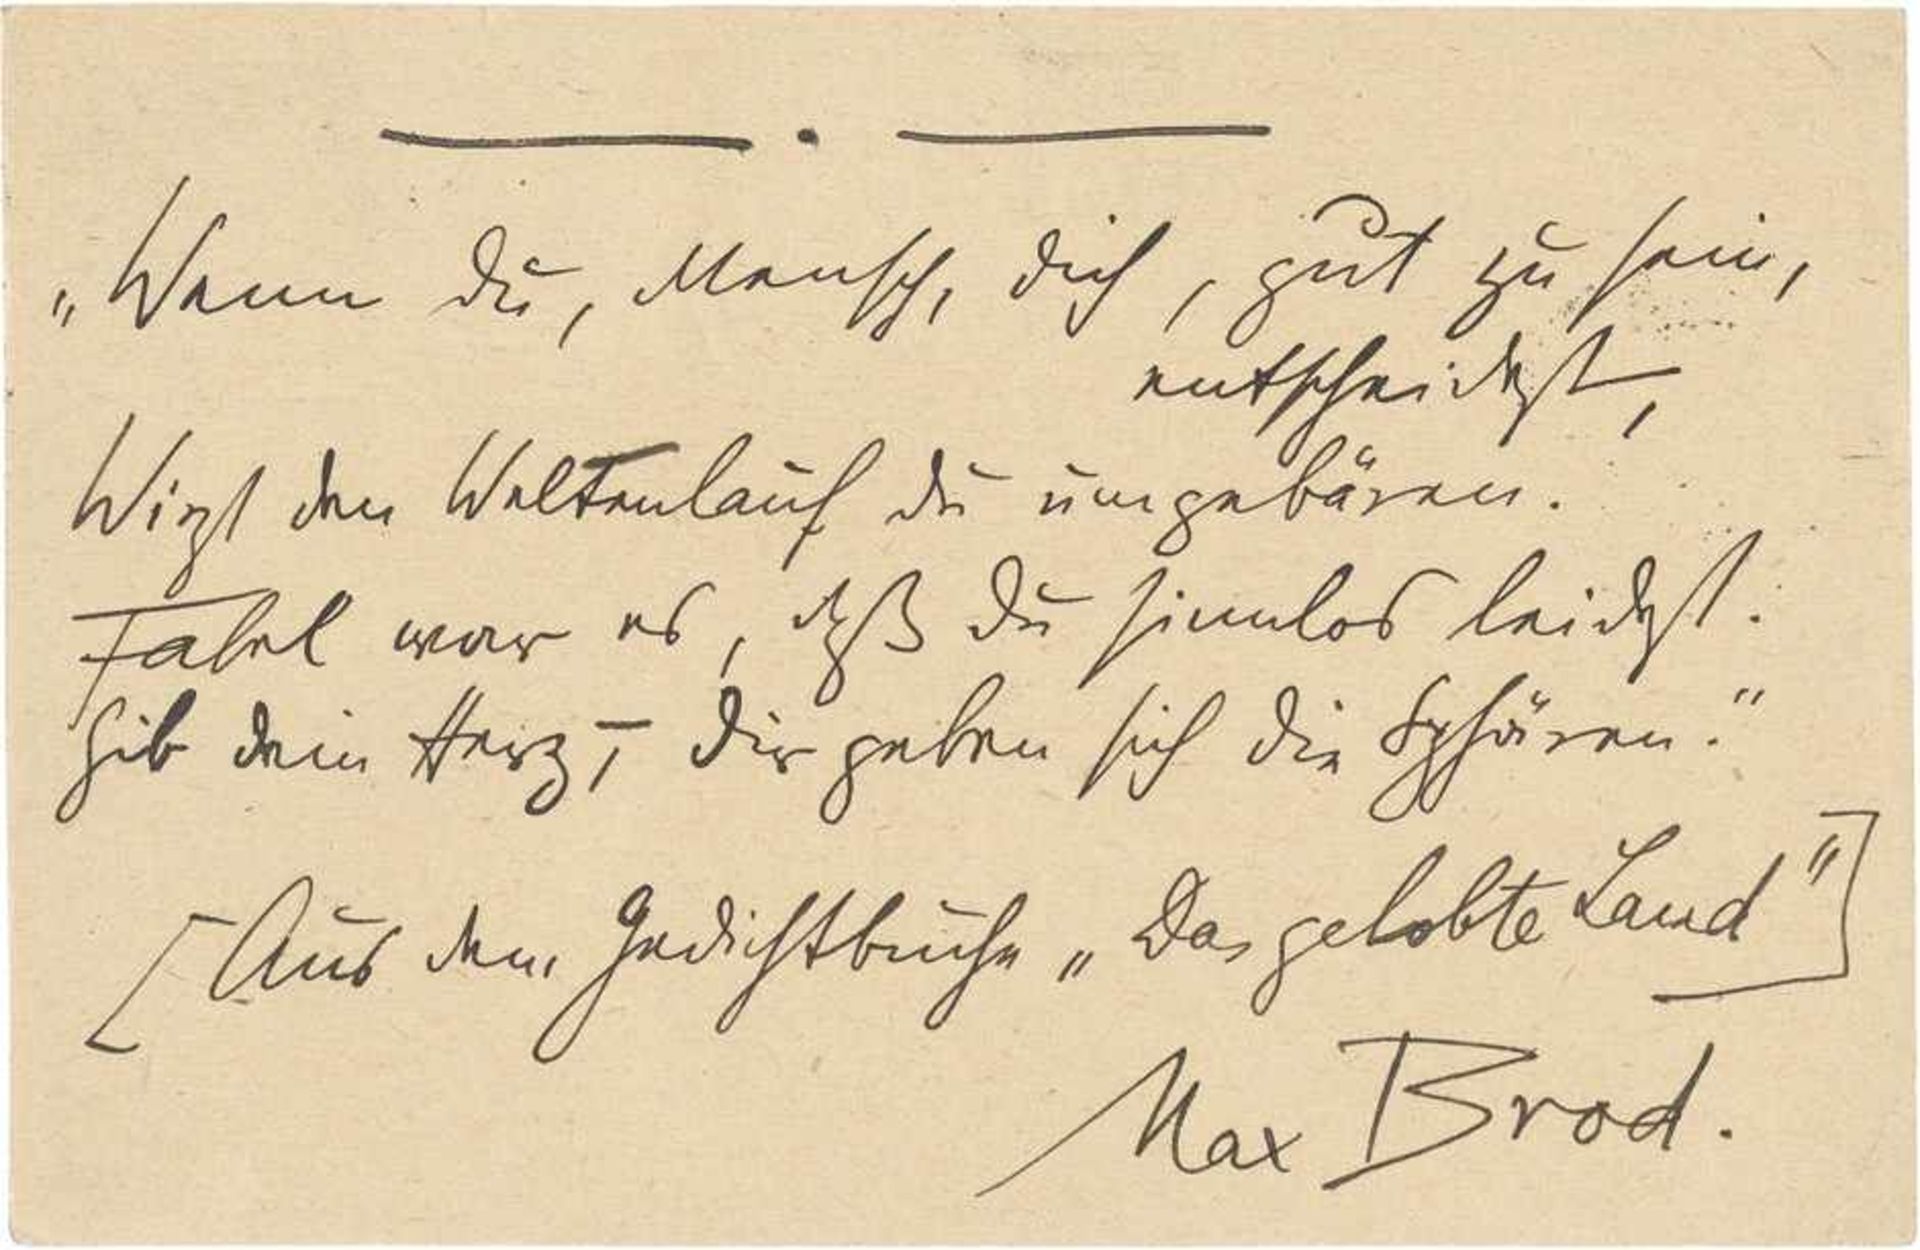 „Wenn du, Mensch, dich, gut zu sein,
entscheidest,
Wirst den Weltenlauf du umgebären.
Fabel war es, daß du sinnlos leidest.
Gib dein Herz, – dir geben sich die Sphären.“
[Aus dem Gedichtbuche „Das gelobte Land“]
Max Brod.